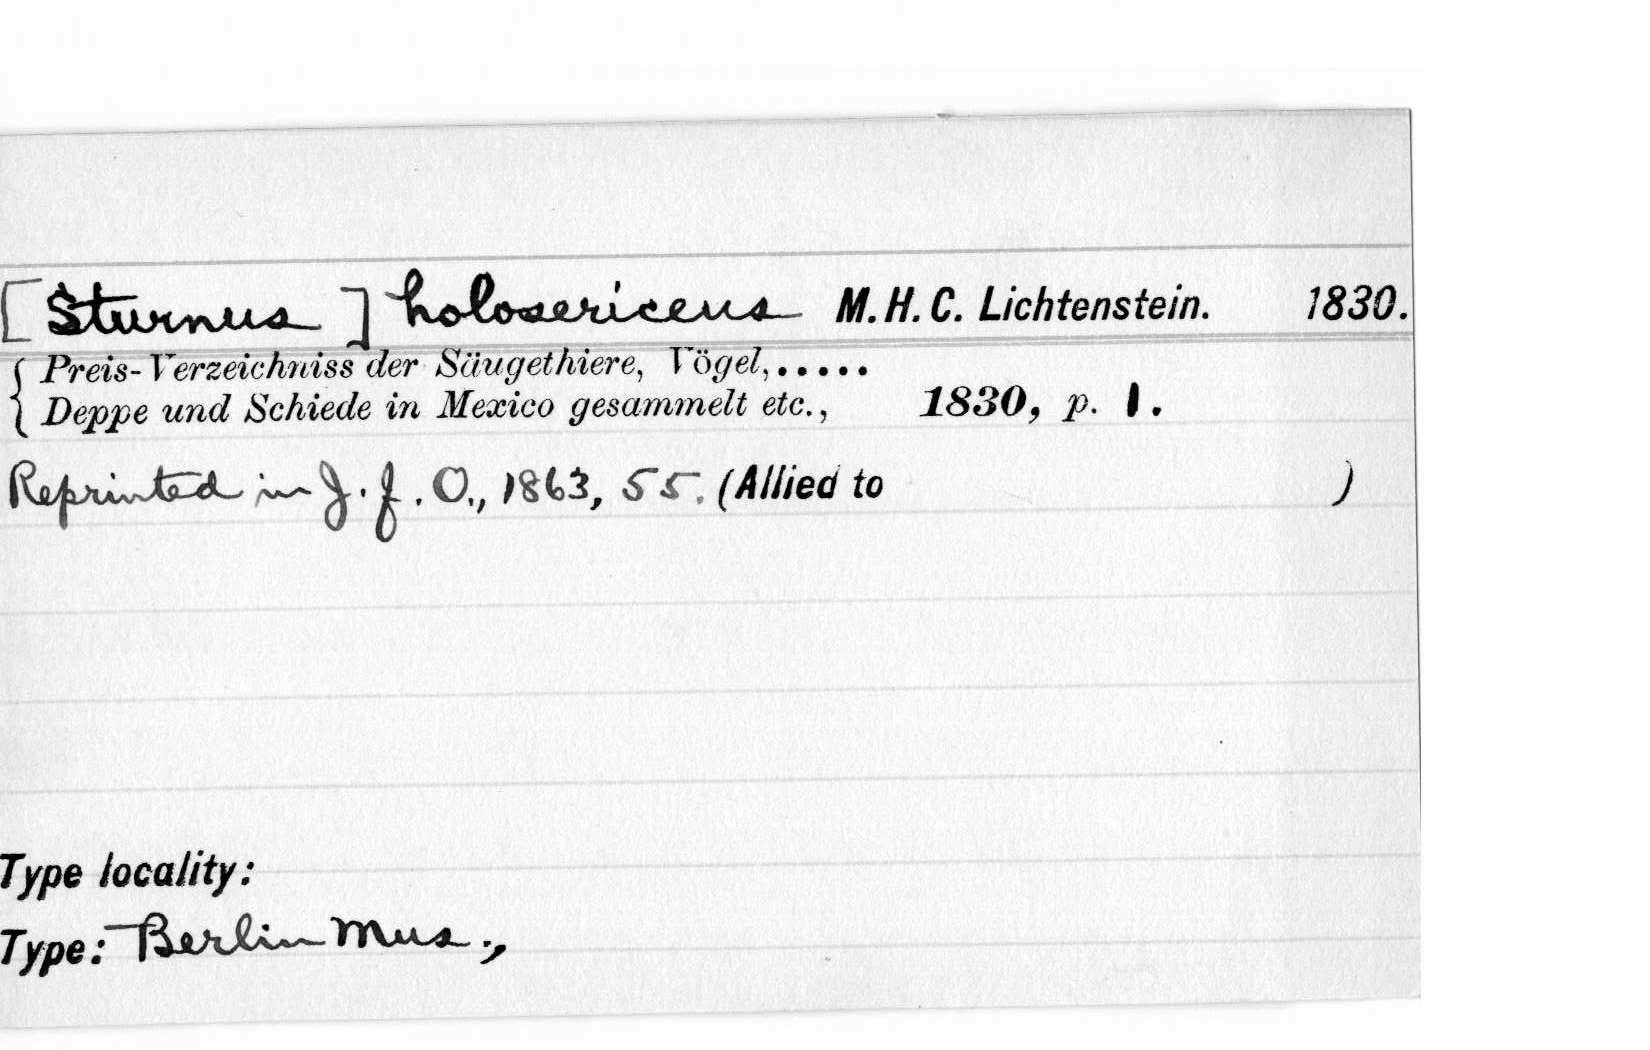 [Sturnus] holosericeus M. H. C. Lichtenstein. 1830.
{ Preis-Verzeichniss der Säugethiere, Vögel,.....
{ Deppe und Schiede in Mexico gesammelt etc., 1830, p. 1.
Reprinted in J. f. O., 1863, 55. (Allied to )
Type locality:
Type: Berlin Mus.,